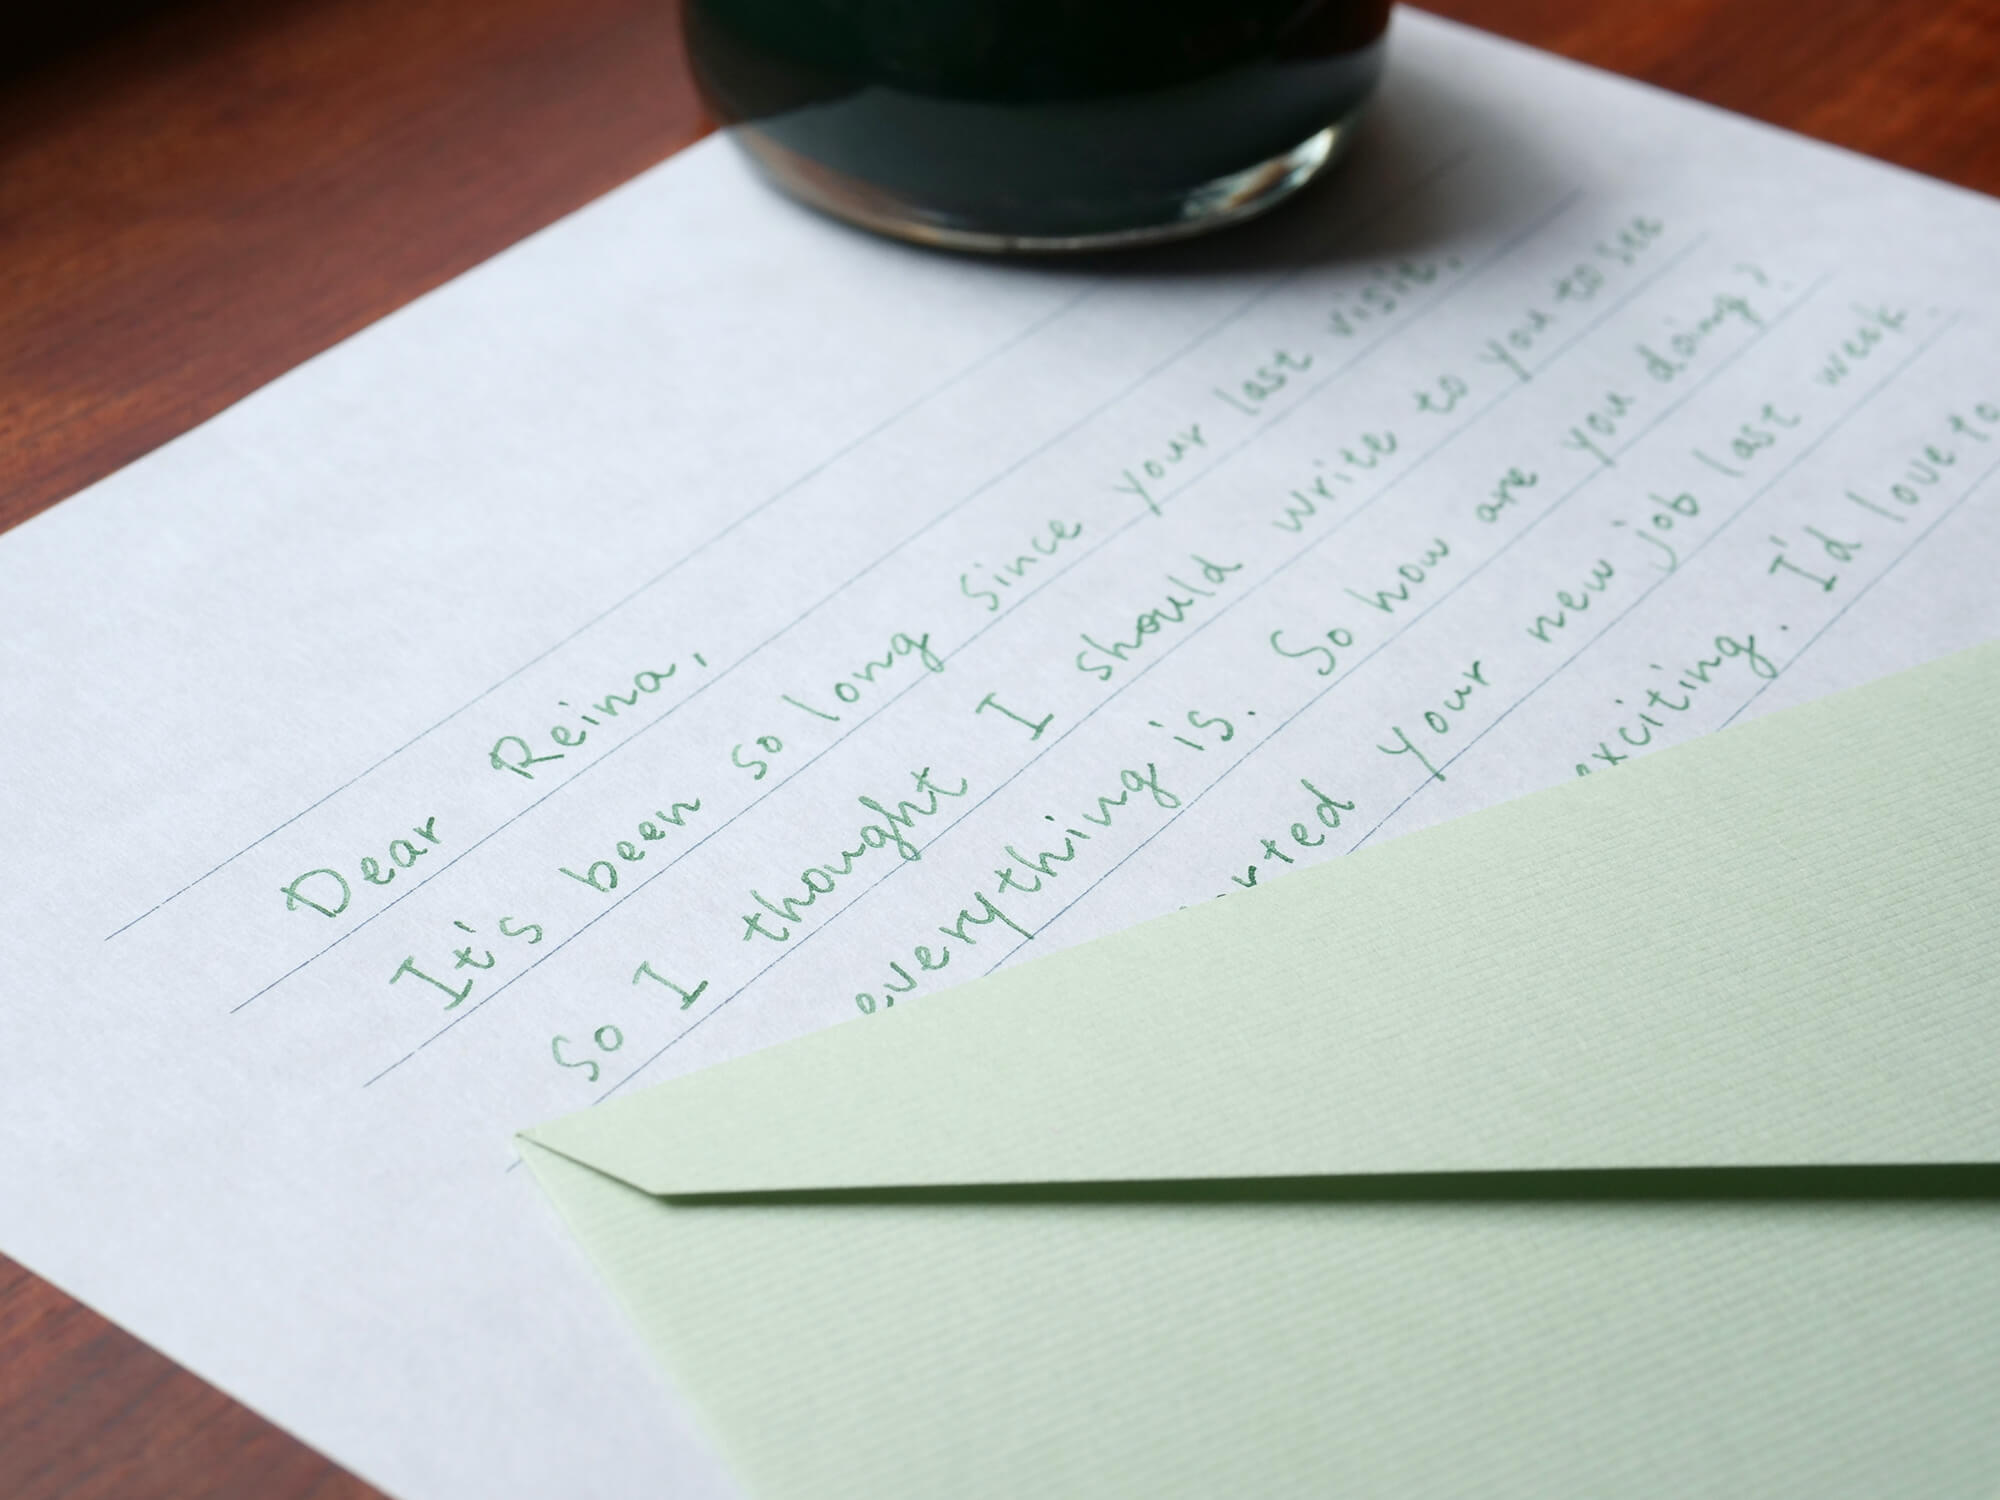 Dear Reina,
It's been so long since your last visit,
So I thought I should write to you to see
everything is. So how are you doing?
rted your new job last week.
exciting. I'd love to